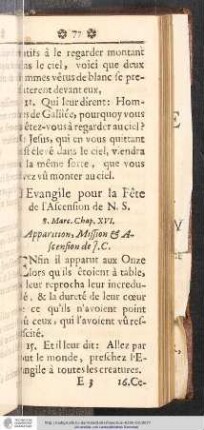 77
ntifs à le regarder montant
ns le ciel, voici que deux
mmes vêtus de blanc se pre-
terent devant eux,
11. Qui leur dirent: Hom-
es de Galilée, pourquoy vous
êtez-vous à regarder au ciel?
Jesus, qui en vous quittant
st élevé dans le ciel, viendra
la même sorte, que vous
vez vû monter au ciel.
Evangile pour la Fête
de l'Ascension de N. S.
S. Marc. Chap. XVI.
Apparition, Mission & A-
scension de J. C.
ENfin il apparut aux Onze
lors qu'ils étoient à table,
leur reprocha leur incredu-
é, & la dureté de leur cœur
ce qu'ils n'avoient point
û ceux, qui l'avoient vû res-
scité.
15. Et il leur dit: Allez par
ut le monde, preschez l'E-
ngile à toutes les creatures.
E 3 16. Ce-